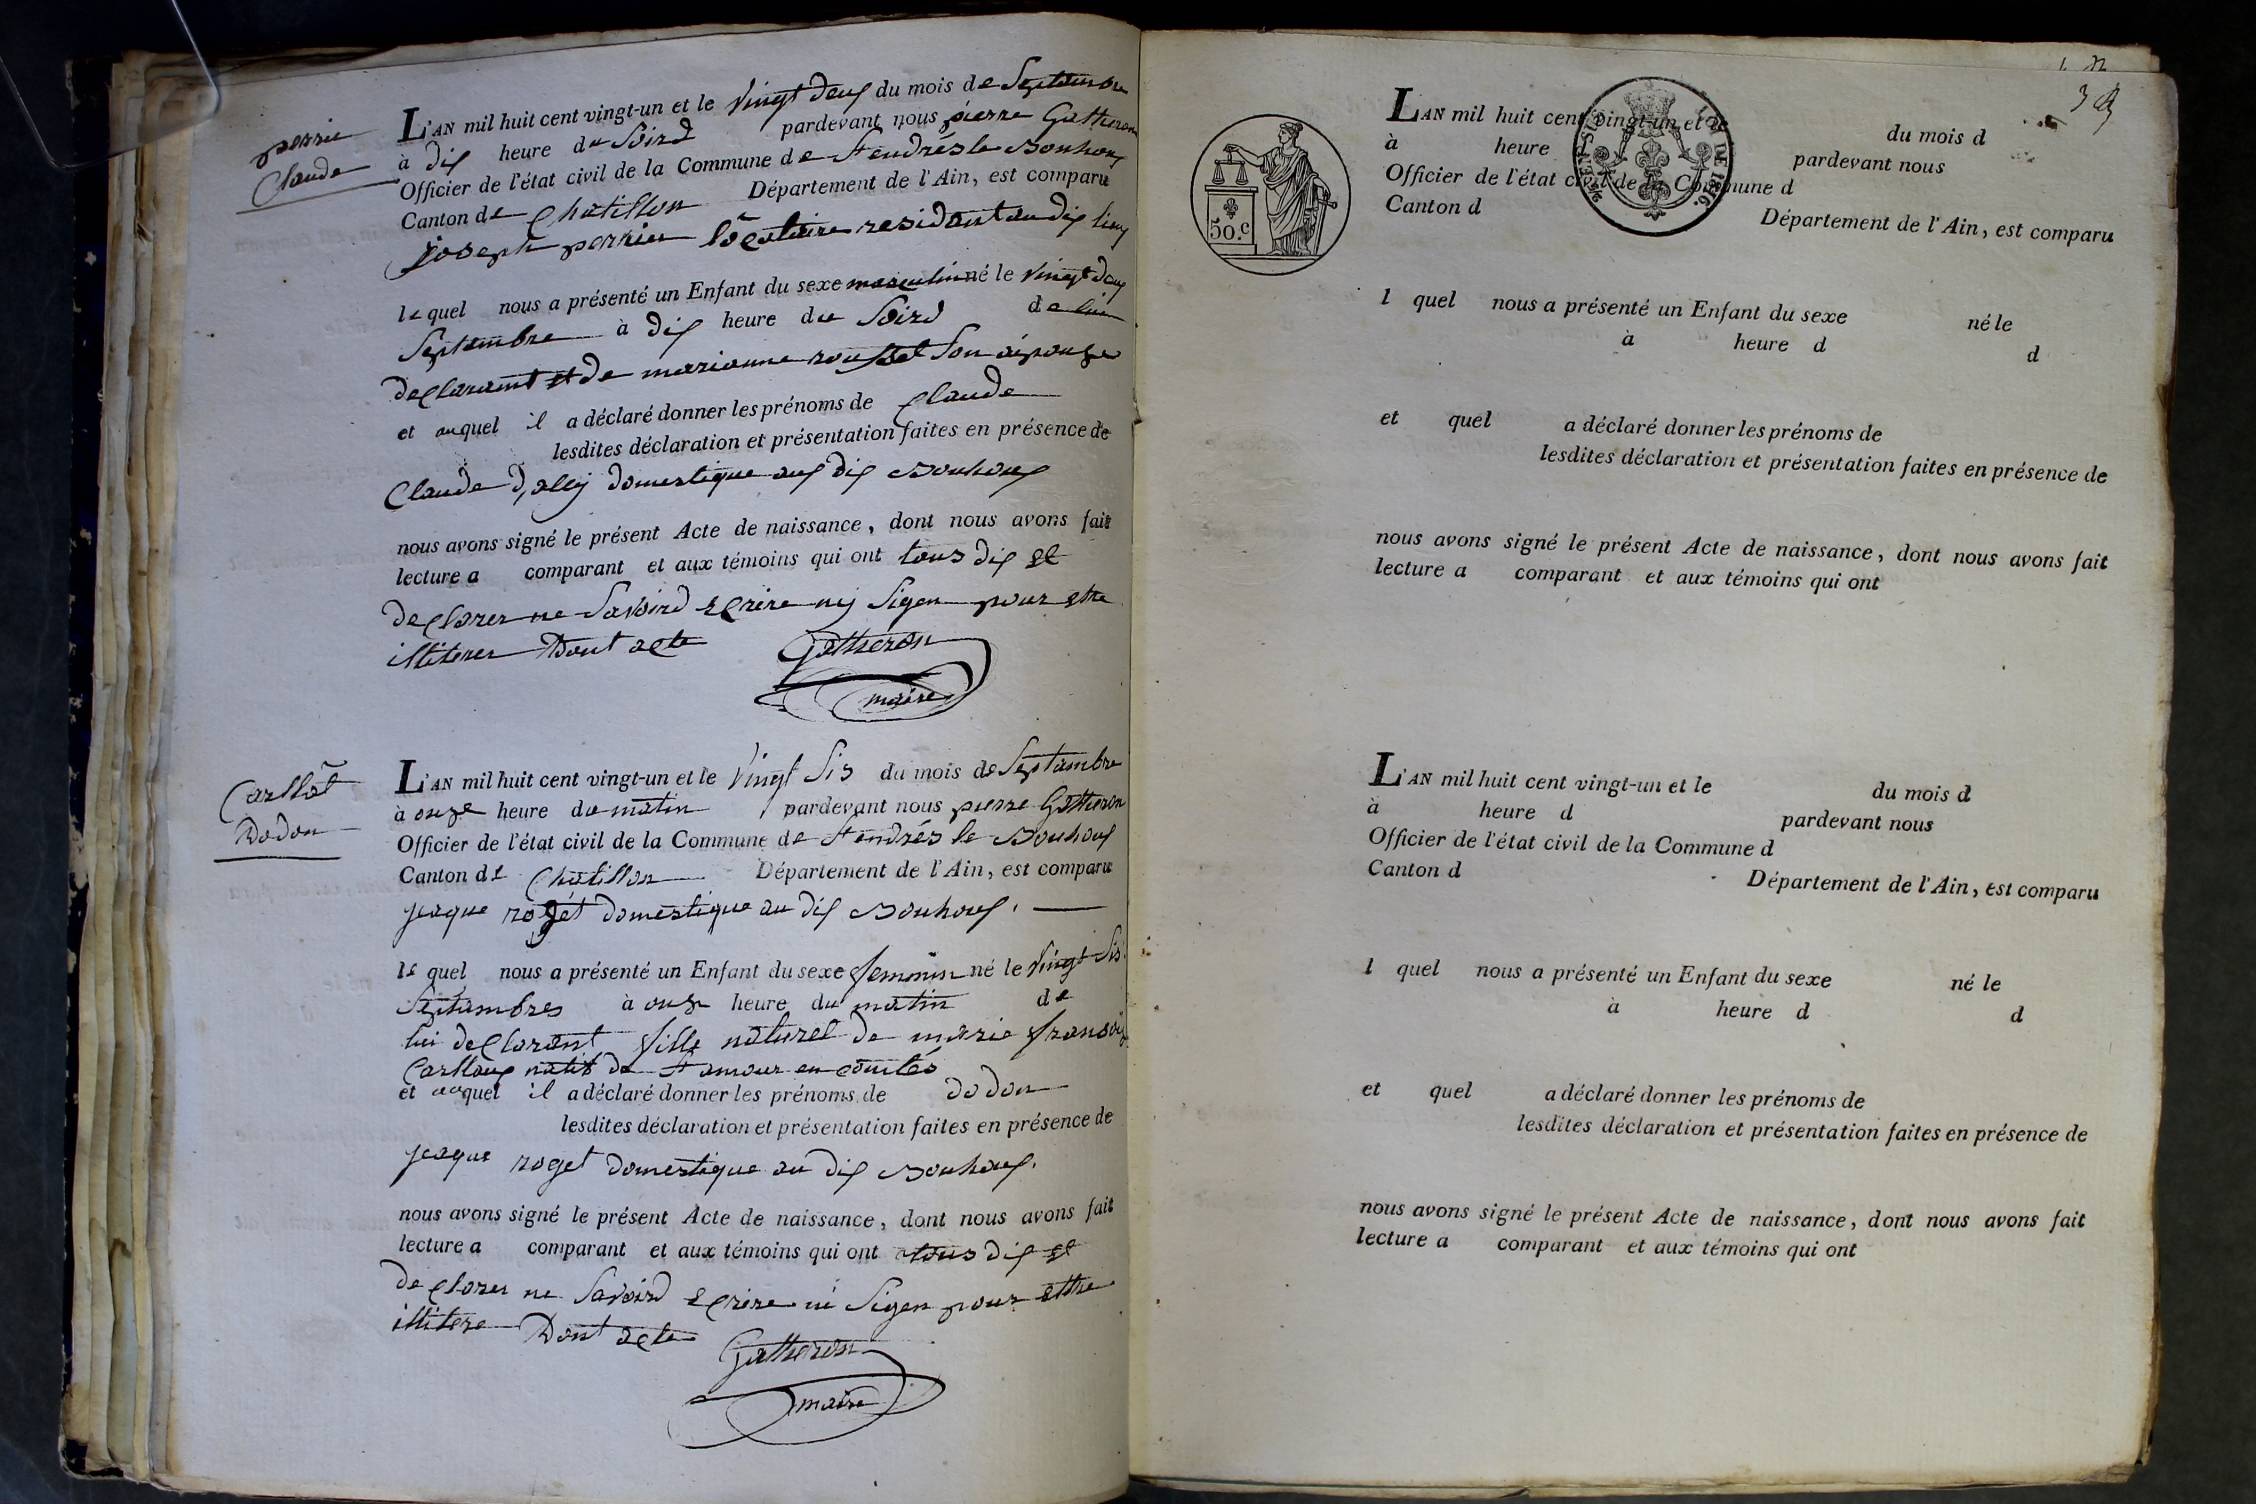 perrie
Claude
L'AN mil huit cent vingt-un et le Vingt deux du mois de Septambre
à dix heure du Soird pardevant nous pierre Gatheron
Officier de l'état civil de la Commune de St endrés le Bouhoux
Canton de Chatillon Département de l'Ain, est comparu
joseph perrier locataire residant au dix lieux
le quel nous a présenté un Enfant du sexe masculin né le Vingt deux
Septambre à dix heure du Soird de lui
declarant et de marianne roussel Son éspouze
et auquel il a déclaré donner les prénoms de Claude
lesdites déclaration et présentation faites en présence de
Claude domestique aux dix Bouhoux
nous avons signé le présent Acte de naissance, dont nous avons fait
lecture a comparant et aux témoins qui ont tous dix et
declarer ne Savoird ecrire nij Signer pour ettre
illiterer Dont acte Gatheron
maire
Carllot
Dodon
L'AN mil huit cent vingt-un et le Vingt Sis du mois de Septambre
à onze heure du matin pardevant nous pierre Gatheron
Officier de l'état civil de la Commune de St endrés le Bouhoux
Canton de Chatillon Département de l'Ain, est comparu
jaque roget domestique au dix Bouhoux.
le quel nous a présenté un Enfant du sexe femenin né le Vingt Sis
Septambres à onze heure du matin de
lui declarant fille naturel de marie
natif de St amour en comtés
et auquel il a déclaré donner les prénoms de dodon
lesdites déclaration et présentation faites en présence de
jaque roget domestique au dix Bouhoux.
nous avons signé le présent Acte de naissance, dont nous avons fait
lecture a comparant et aux témoins qui ont tous dix et
declarer ne Savoird ecrire ni Signer pour ettre
illitere Dont acte Gatheron
maire
50.c
LOI DE 1816.
L'AN mil huit cent vingt-un et le du mois d
à heure d pardevant nous
Officier de l'état civil de la Commune d
Canton d Département de l'Ain, est comparu
l quel nous a présenté un Enfant du sexe né le
à heure d d
et quel a déclaré donner les prénoms de
lesdites déclaration et présentation faites en présence de
nous avons signé le présent Acte de naissance, dont nous avons fait
lecture a comparant et aux témoins qui ont
L'AN mil huit cent vingt-un et le du mois d
à heure d pardevant nous
Officier de l'état civil de la Commune d
Canton d Département de l'Ain, est comparu
l quel nous a présenté un Enfant du sexe né le
à heure d d
et quel a déclaré donner les prénoms de
lesdites déclaration et présentation faites en présence de
nous avons signé le présent Acte de naissance, dont nous avons fait
lecture a comparant et aux témoins qui ont